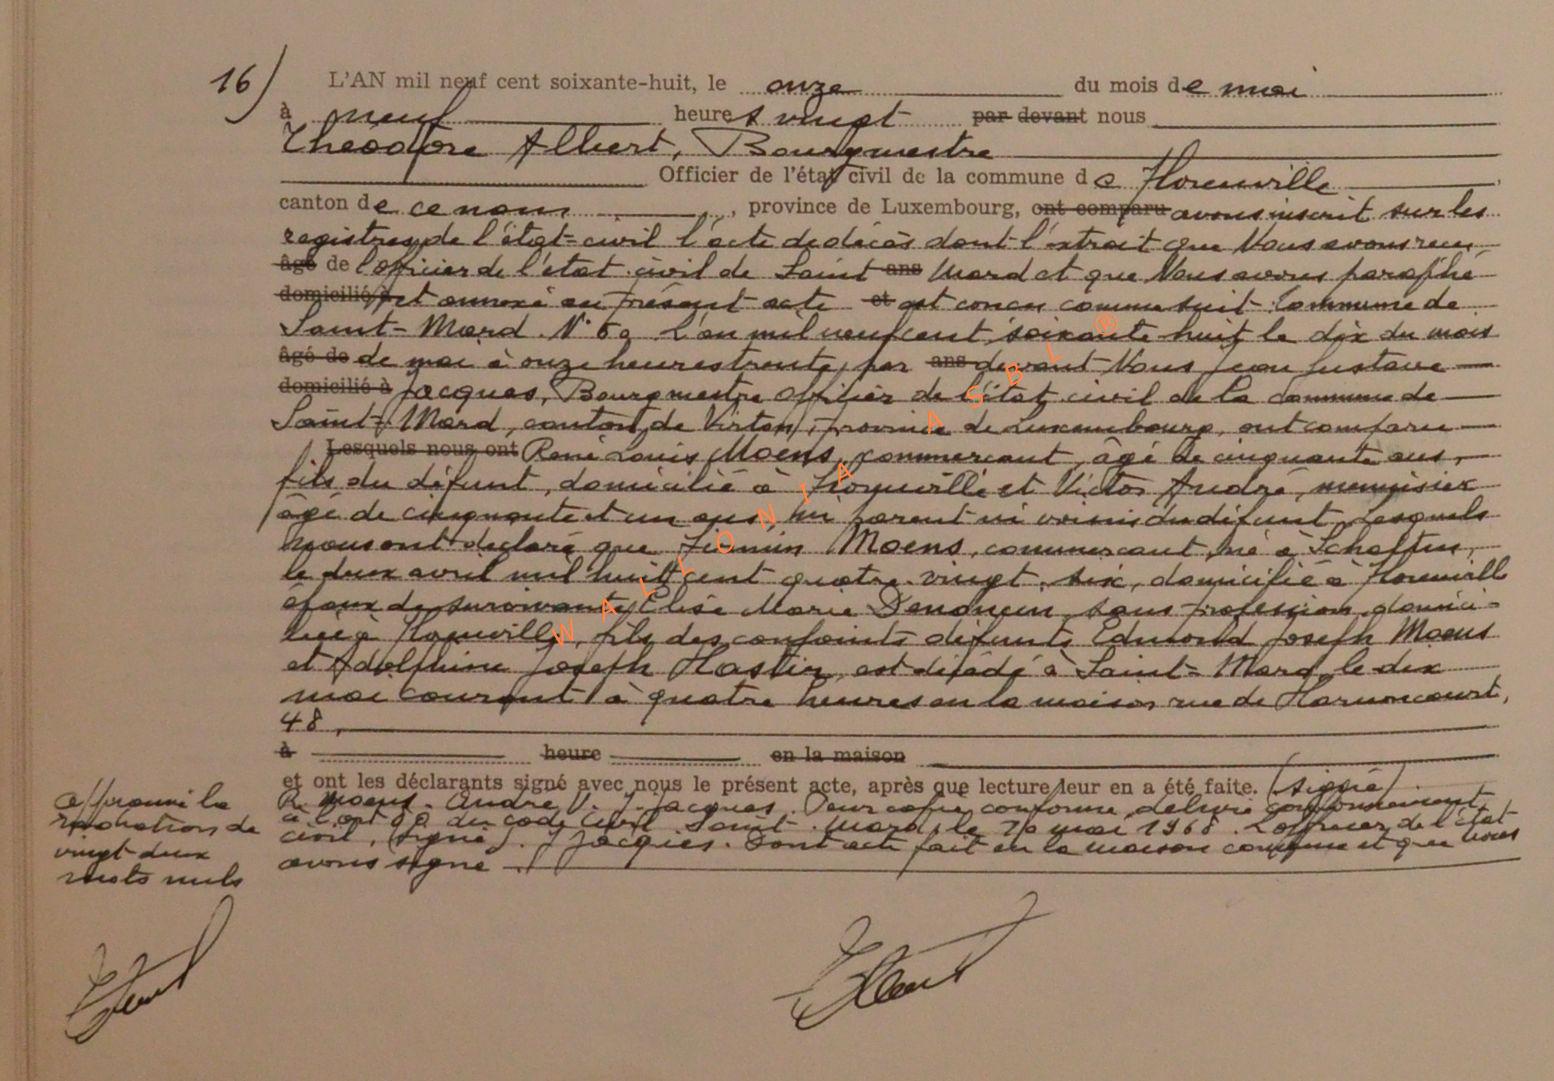 16)
L'AN mil neuf cent soixante-huit, le onze du mois de mai
à neuf heures vingt par devant nous
Théodore Albert, Bourgmestre
Officier de l'état civil de la commune de Florenville
canton de ce nom, province de Luxembourg, ont comparu avons inscrit sur les
registres de l'état-civil l'acte de décès dont l'extrait que Nous avons reçu
âgé de l'officier de l'état civil de Saint ans Mard et que Nous avons paraphé
domicilié à et annexé au présent acte et est conçu comme suit: Commune de
Saint-Mard. N° 69 L'an mil neuf cent soixante huit le dix du mois
âgé de de mai à onze heures trente, par ans devant Nous Jean Gustave
domicilié à Jacques, Bourgmestre officier de l'état civil de la commune de
Saint-Mard, canton de Virton, province de Luxembourg, ont comparu
Lesquels nous ont René Louis Moens, commerçant, âgé de cinquante ans,
fils du défunt, domicilié à Florenville et Victor André, menuisier
âgé de cinquante et un ans, ni parent ni voisin du défunt, lesquels
nous ont déclaré que Firmin Moens, commerçant, né à Scholtin,
le deux avril mil huit cent quatre-vingt-six, domicilié à Florenville
époux de survivante Elise Marie Denoncin, sans profession, domici-
liée à Florenville, fils des conjoints défunts Edmond Joseph Moens
et Adolphine Joseph Hastir, est décédé à Saint-Mard, le dix
mai courant à quatre heures en la maison rue de Harnoncourt,
48,
à heure en la maison
et ont les déclarants signé avec nous le présent acte, après que lecture leur en a été faite. (signé)
R. Moens. André V. J. Jacques. Pour copie conforme, délivré conformément
à l'art 80 du code civil. Saint-Mard, le 10 mai 1968. L'officier de l'état
civil, (signé) J. Jacques. Dont acte fait en la maison commune et que nous
avons signé
approuvé la
radiation de
vingt deux
mots nuls
WALLONIA ASBL ®